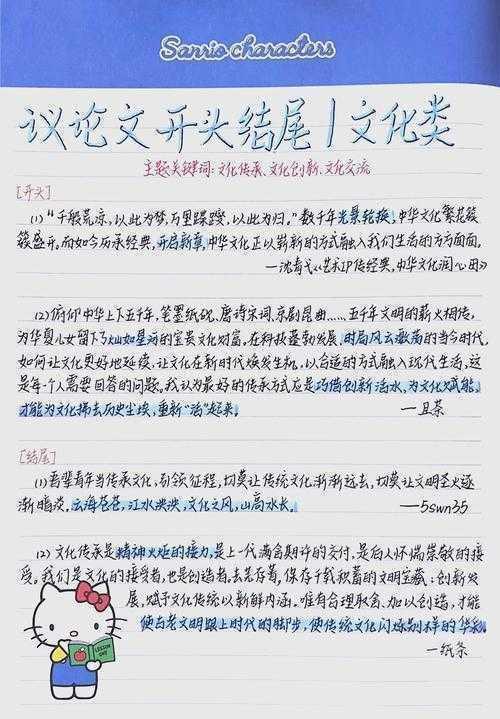 Sanrio characters
议论文开头结尾|文化类
主题关键词:文化传承、文化创新、文化交流
[开头]
(1)“千般荒凉,以此为梦,万里蹀躞,以此为归。”数千年光景轮换,中华文化繁花簇
簇盛开。而如今历承经典,开启新章,中华文化正以崭新的方式融入我们生活的方方面面。
—沈青弋《艺术IP传经典,中华文化润心田》
(2)俯仰中华上下五千年,笔墨纸砚、唐诗宋词、京剧昆曲……五千年文明的薪火相传,
为华夏儿女留下了灿如星河的宝贵文化财富。在科技蓬勃发展、时局风云激荡的当今时代,
如何让文化更好地延续,让文化在新时代焕发生机,以合适的方式融入现代生活,这
是每个人需要回答的问题。我认为最好的传承方式应是巧借创新活水,为文化赋能,
才能为文化拂去历史尘埃,重新“活”起来。 —且茶
[结尾]
(1)吾辈青年当传承文化,引领征程,切莫让传统文化渐渐远去,切莫让文明圣火逐
渐暗淡。云海苍苍,江水泱泱,文化之风,山高水长。 ——5swn35
(2)文化传承是精神火炬的接力,是上一代满含期许的交付,是后人怀揣崇敬的接
受。我们是文化的接受者,也是创造者,去芜存菁,保存千载积蓄的文明宝藏;创新发
展,赋予文化传统以新鲜内涵。唯有合理取舍,加以创造,才能
使古老文明跟上时代的脚步,使传统文化闪烁别样的华彩。
—纸条
LESSON